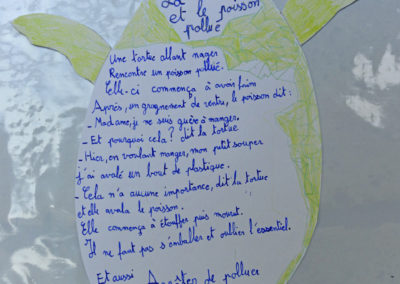 La
et le poisson
pollué
Une tortue allant nager
Rencontre un poisson pollué.
Elle-ci commença à avoir faim
Après, un grognement de ventre, le poisson dit :
- Madame, je ne suis guère à manger.
- Et pourquoi cela ? dit la tortue
- Hier, en voulant manger, mon petit souper
j'ai avalé un bout de plastique.
- Cela n'a aucune importance, dit la tortue
et elle avala le poisson.
Elle commença à étouffer puis mourut.
Il ne faut pas s'emballer et oublier l'essentiel.
Et aussi Arrêter de polluer